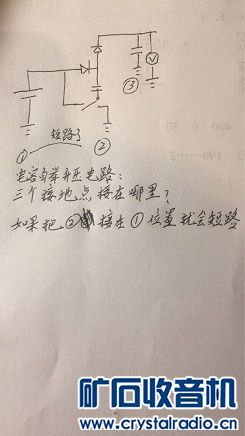 V
③
短路了
①
②
电容自举升压电路:
三个接地点接在哪里?
如果把②接在①位置就会短路
矿石收音机
www.crystalradio.cn